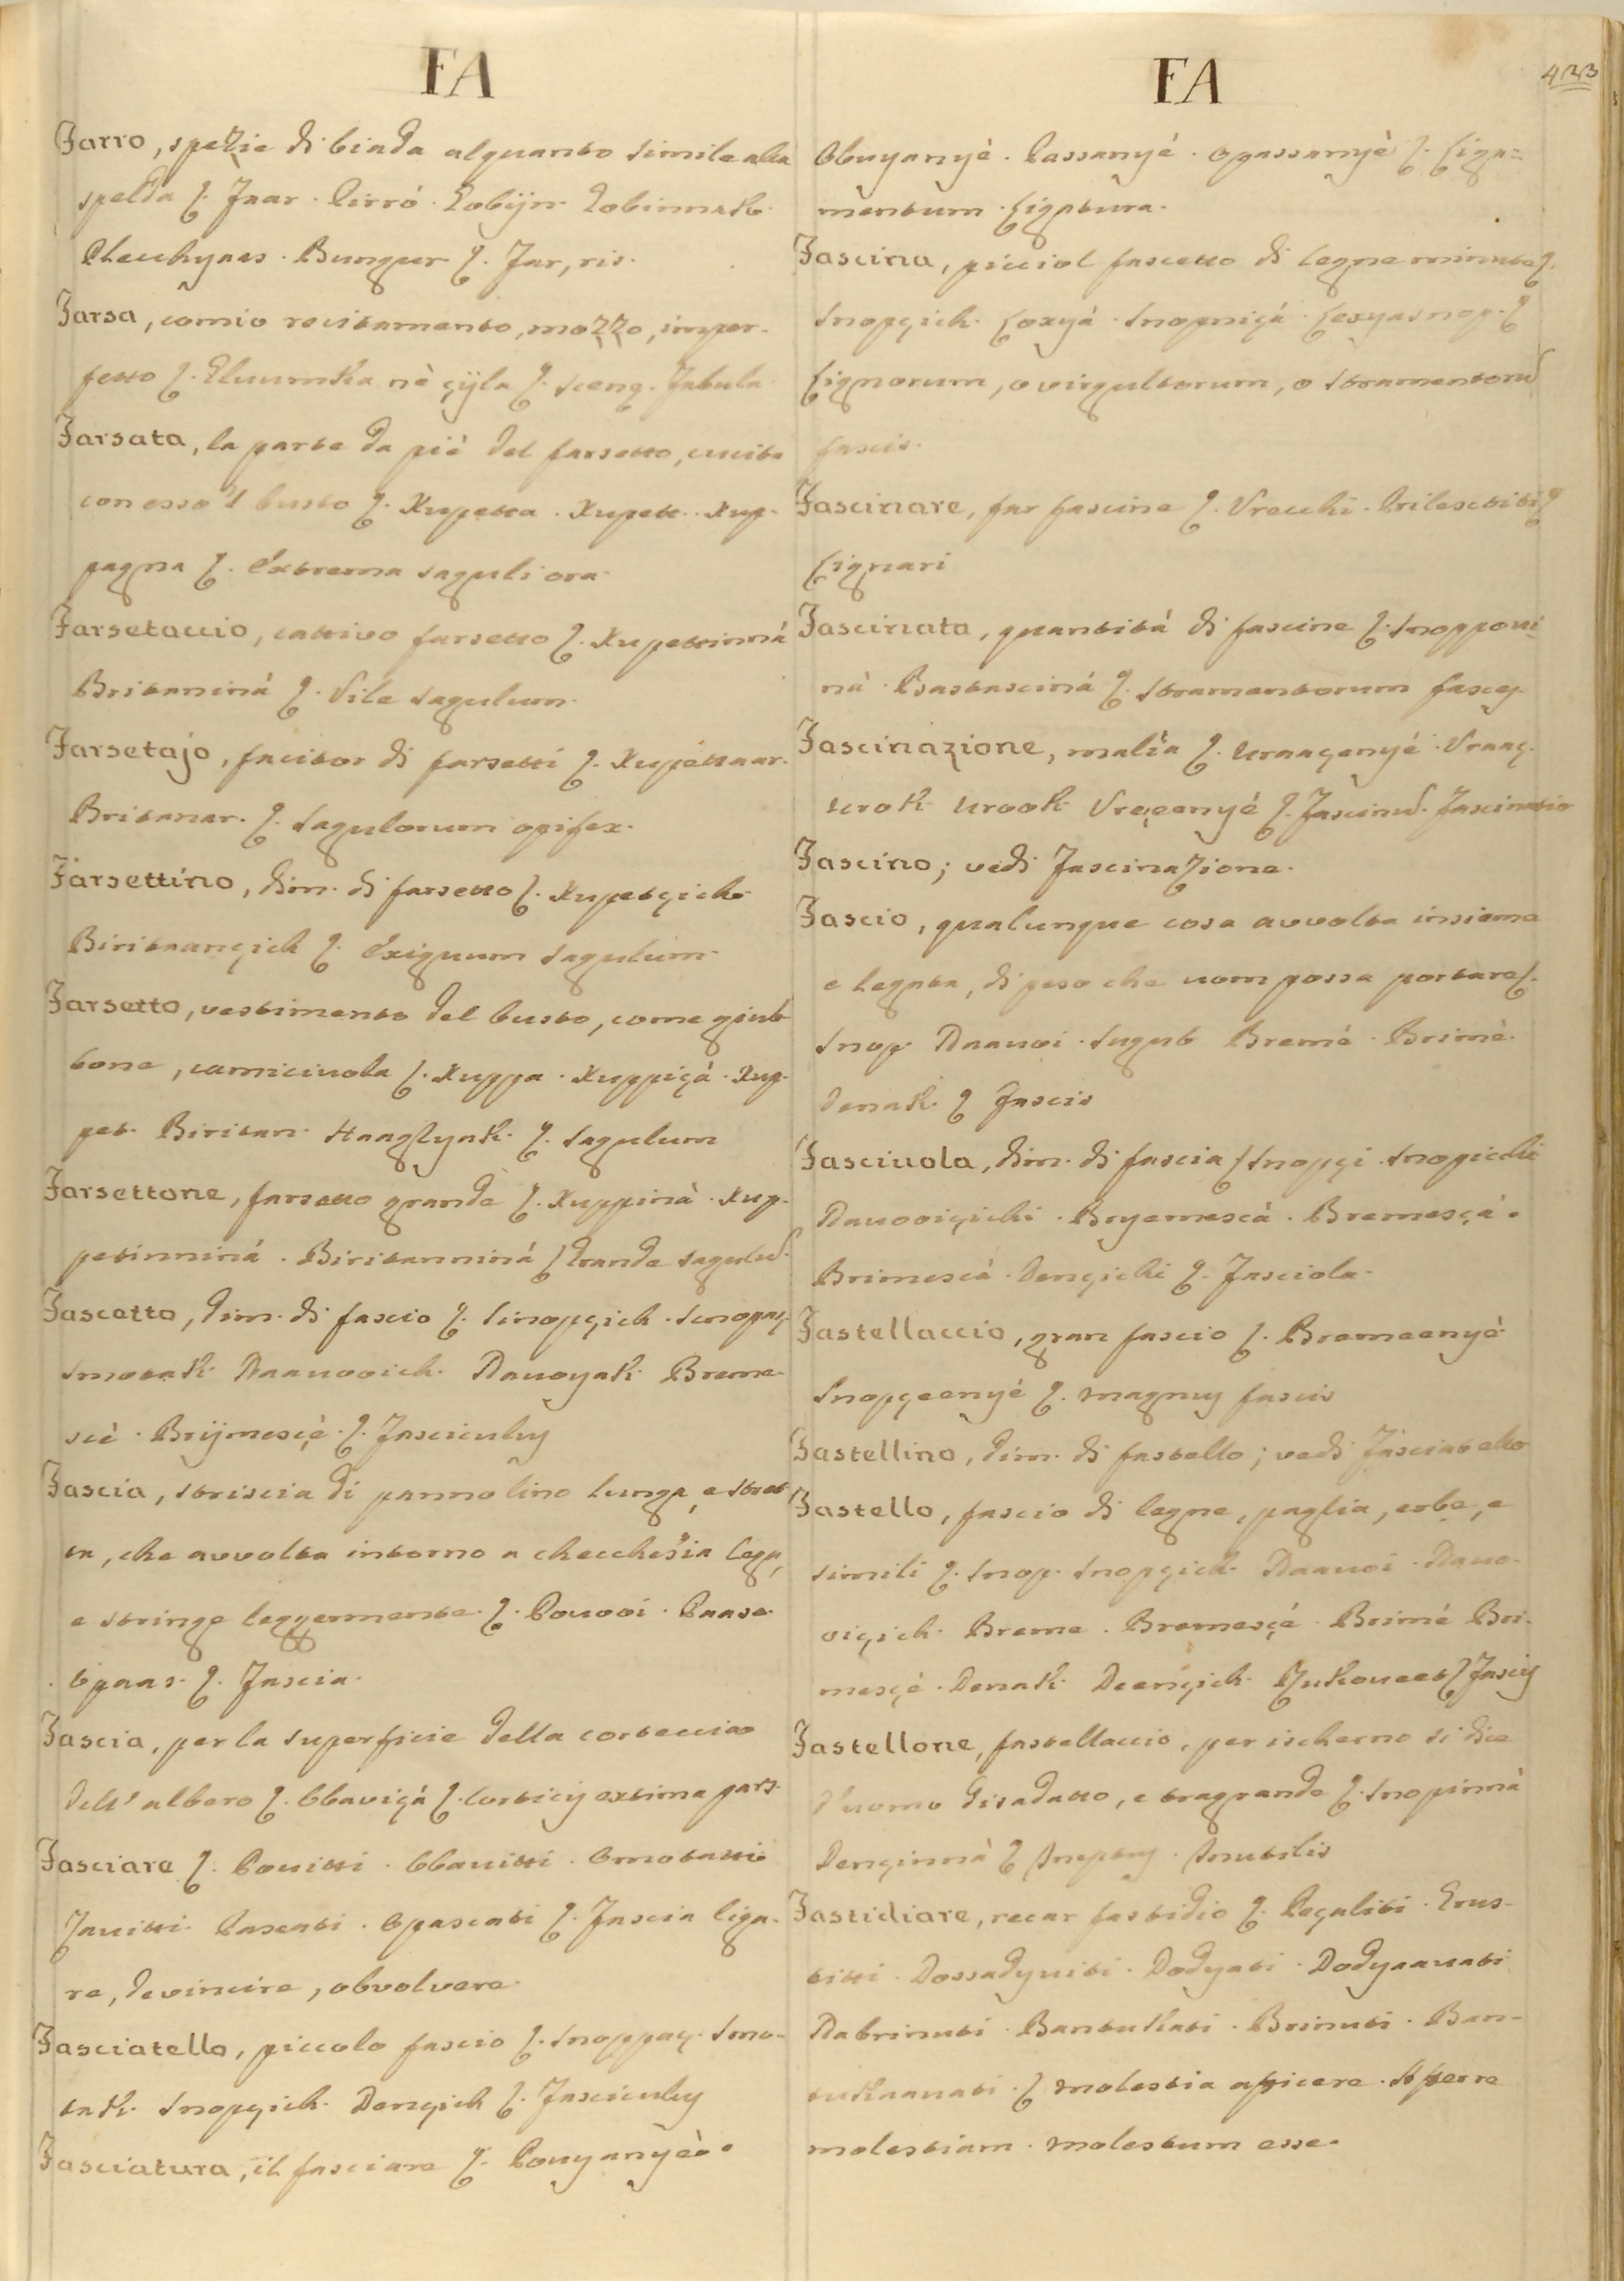 FA
Farro, spezie di biada alquanto simile alla
spelda ζ. Faar. Pirró. Lobijn. Lobinnak.
Plecchyaas. Bungur ζ. Far, ris.
Farsa, comio recitamento, mozzo, imper-
fetto ζ. Eluumka nè çijla ζ. Scenq. Fabula.
Farsata, la parte da piè del farsetto, cucita
con esso 'l busto ζ. Xupetta. Xupett. Xup-
pagna ζ. Extrema saguli ora.
Farsetaccio, cattivo farsetto ζ. Xupettinná
Britaniná ζ. Vile sagulum.
Farsetajo, facitor di farsetti ζ. Xupettaar.
Britanar. ζ. Sagulorum opifex.
Farsettino, dim. di farsetto ζ. Xupetçich.
Biritaançich ζ. Exiguum sagulum.
Farsetto, vestimento del busto, come giub-
bone, camiciuola ζ. Xuppa. Xuppiçá. Xup-
pet. Biritan. Haaglynk. ζ. Sagulum
Farsettone, farsetto grande ζ. Xuppinà. Xup-
petinniná. Biritanniná ζ Grande sagulu.
Fascetto, dim. di fascio ζ. Sinopçich. Snopaç
smotak. Naauooich. Nauoyak. Breme-
sce. Brijmesçè. ζ. Fasciculus
Fascia, striscia di pannolino lunga, e stret-
ta, che avvolta intorno a checchesia lega,
e stringe leggermente. ζ. Pouooi. Paasa.
Opaas. ζ. Fascia.
Fascia, per la superficie della corteccia
dell' albero ζ. Obaviçá ζ. Corticis extima pars.
Fasciare ζ. Pouitti. Obauitti. Omotatti
Zauitti. Passati. Opascati ζ. Fascia liga-
re, devincire, obvolvere.
Fasciatello, piccolo fascio ζ. Snoppaç. Smo-
tak. Snopçich. Dençich ζ. Fasciculus
Fasciatura, il fasciare ζ. Pouyanyè.
FA
433
Obuyanyè. Passanyé. Opassanyè ζ. Liga-
mentum. Ligatura.
Fascina, picciol fascetto di legne minute ζ.
Snopçich. Loxyá. Snopniçá. Loxyasnop. ζ
Lignorum, o virgultorum, o stramentoru
fascis.
Fascinare, far fascine ζ. Vrecchi. Prilesctiti ζ
Lignari
Fascinata, quantitá di fascine ζ. Snoppoui-
nà. Bastasciná ζ. Stramentorum fasces.
Fascinazione, malia ζ. Uraaçenyé. Vraaç.
Urok. Urook. Vreçenyé ζ. Fascinu. Fascinatio
Fascino; vedi Fascinazione.
Fascio, qualunque cosa avvolta insieme
e legata, di peso che uom possa portare ζ.
Snop. Naauoi. Sugub. Bremé. Brimè.
Denak. ζ Fascis
Fasciuola, dim. di fascia ζ Snopçi. Snopicchi
Nauooiçichi. Bryemescà. Bremesçá.
Brimescà. Dençichi ζ. Fasciola.
Fastellaccio, gran fascio ζ. Bremeenyè
Snopçeenyé ζ. Magnus fascis
Fastellino, dim. di fastello; vedi Fasciatello
Fastello, fascio di legne, paglia, erbe, e
simili ζ. Snop. Snopçich. Naauoi. Nauo-
oiçich. Breme. Bremesçé. Brimé. Bri-
mesçè. Denak. Deençich. Zukoueet ζ Fascis
Fastellone, fastellaccio, per ischerno si dice
d'uomo disadatto, e tragrande ζ. Snopinná
Dençinnà ζ Ineptus. Inutilis
Fastidiare, recar fastidio ζ. Peçaliti. Erus-
titti. Dossadyuiti. Dodyati. Dodyaauati
Nabrinuti. Bantukati. Brinuti. Ban-
tukaauati. ζ Molestia aficere. Afferre
molestiam. Molestum esse.